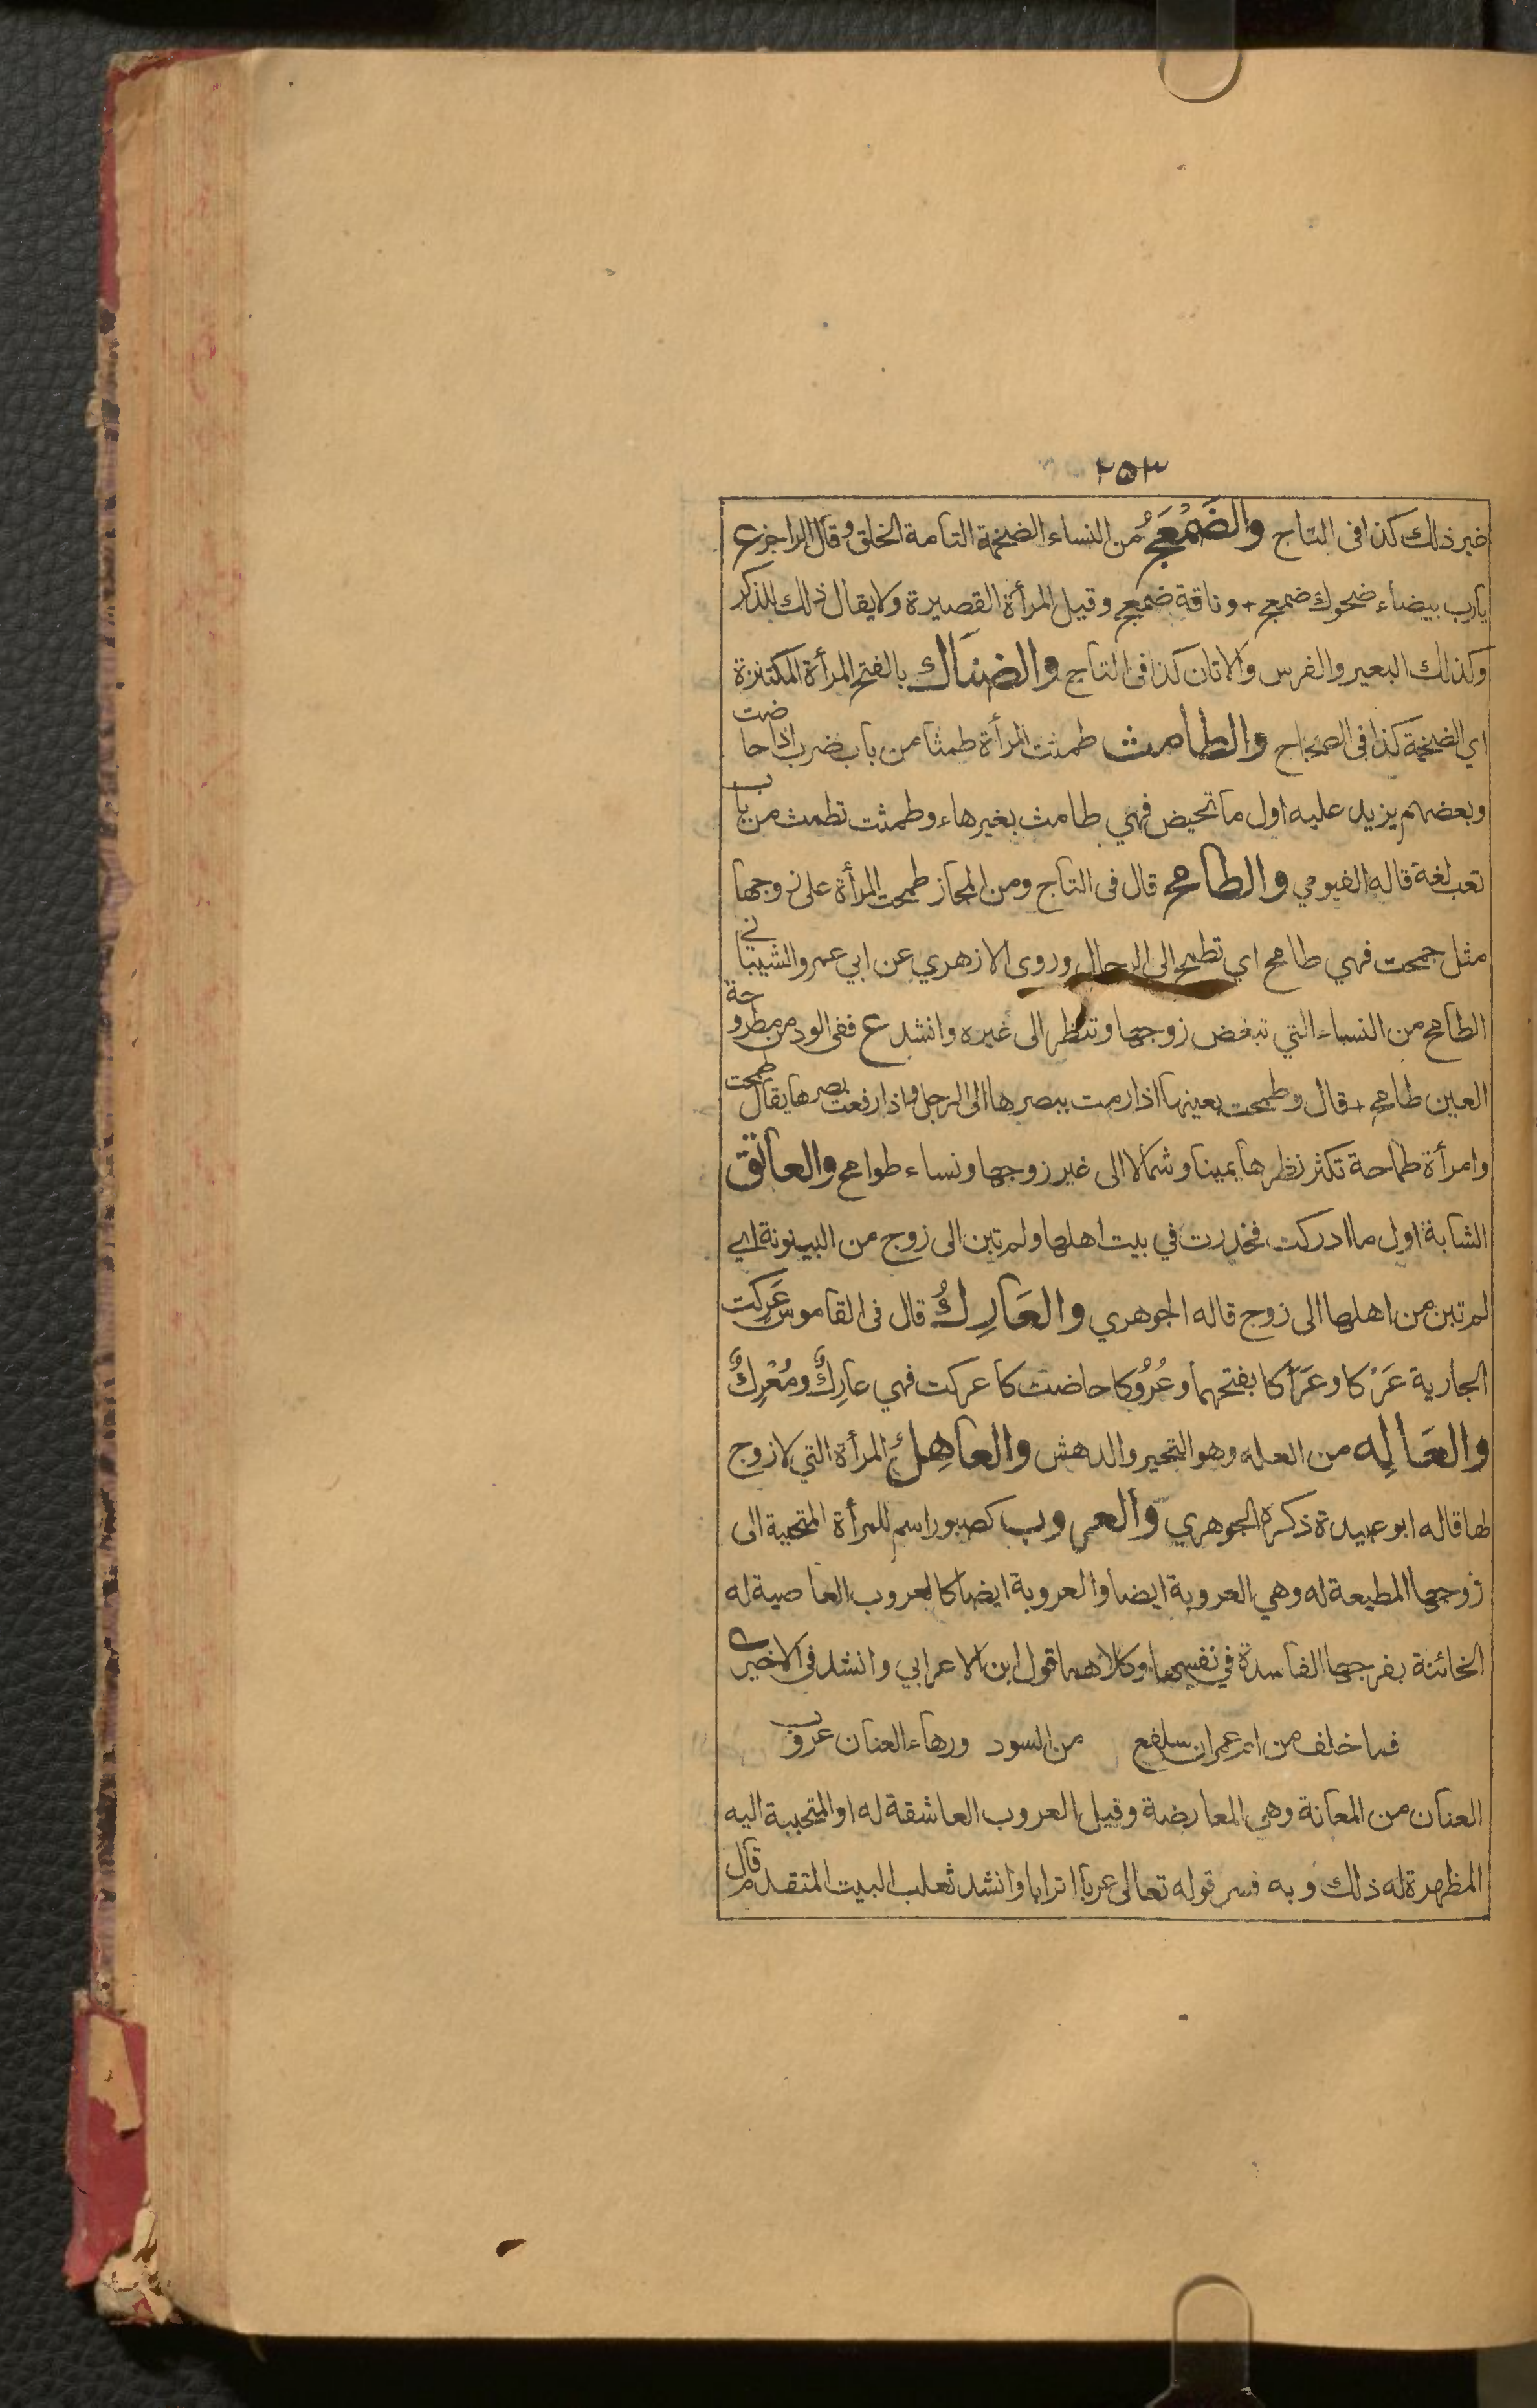 ٢٥٣
غير ذلك كذا فى التاج والضَمْعَجُ من النساء الضخمة التامة الخلق وقال الراجز ع
يارب بيضاء ضحوك ضمعج + وناقة ضمعج وقيل المرأة القصيرة ولا يقال ذلك للذكر
وكذلك البعير والفرس والاتان كذا فى التاج والضِنَاك بالفتح المرأة المكتنزة
اي الضخمة كذا فى الصحاح والطامث طمثت المرأة طمثا من باب ضرب اذا حاضت
وبعضهم يزيد عليه اول ما تحيض فهي طامث بغيرهاء وطمثت تطمث من باب
تعب لغة قاله الفيومي والطامح قال فى التاج ومن المجاز طمحت المرأة على زوجها
مثل جمحت فهي طامح اي تطمح الى الرجال وروى الازهري عن ابي عمرو الشيباني
الطامح من النساء التي تبغض زوجها وتنظر الى غيره وانشد ع ففى الود من مطروحة
العين طامح + قال وطمحت بعينها اذا رمت ببصرها الى الرجل واذا رفعت بصرها يقال طمحت
وامرأة طماحة تكثر نظرها يمينا وشمالا الى غير زوجها ونساء طوامح والعاتق
الشابة اول ما ادركت فخدرت في بيت اهلها ولم تبن الى زوج من البينونة اي
لم تبن من اهلها الى زوج قاله الجوهري والعَارِكُ قال فى القاموس عَرِكت
الجارية عَرْكا وعَرَاكا بفتحهما وعُرُوكا حاضت كاعركت فهي عارِكٌ ومُعْرِكٌ
والعَالِه من العله وهو التحير والدهش والعاهِلُ المرأة التي لا زوج
لها قاله ابو عبيدة ذكره الجوهري والعروب كصبور اسم للمرأة المتحببة الى
زوجها المطيعة له وهي العروبة ايضا والعروبة ايضا كالعروب العاصية له
الخائنة بفرجها الفاسدة في نفسها وكلاهما قول ابن الاعرابي وانشد فى الاخير
فما خلف من ام عمران سلفع من السود ورهاء العنان عروب
العنان من المعانة وهي المعارضة وقيل العروب العاشقة له او المتحببة اليه
المظهرة له ذلك وبه فسر قوله تعالى عربا اترابا وانشد ثعلب البيت المتقدم قال